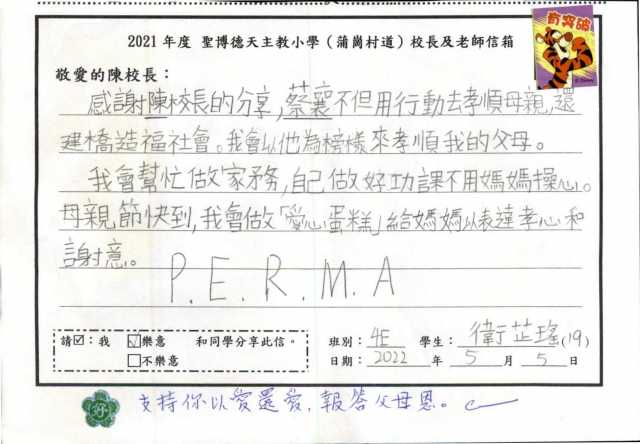 有突破
© Disney
2021 年度 聖博德天主教小學（蒲崗村道）校長及老師信箱
敬愛的陳校長：
感謝陳校長的分享，蔡襄不但用行動去孝順母親，還
建橋造福社會。我會以他為榜樣來孝順我的父母。
我會幫忙做家務，自己做好功課不用媽媽操心。
母親節快到，我會做「愛心蛋糕」給媽媽以表達孝心和
謝意。
P.E.R.M.A
請☑：我 ☑樂意 和同學分享此信。
□不樂意
班別：4E 學生：衛芷瑤(19)
日期：2022 年 5 月 5 日
好
支持你以愛還愛，報答父母恩。